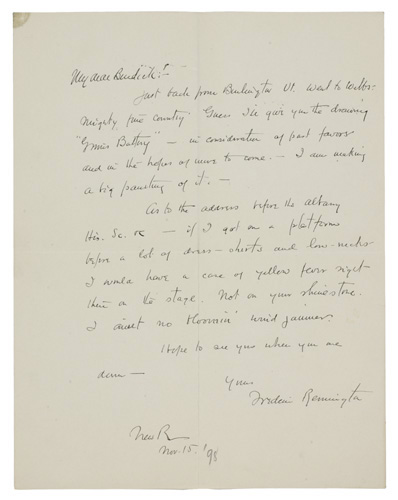 My dear Burdick:-
Just back from Burlington Vt. went to
mighty fine country Guess I'll give you the drawing
"Grimes Battery" — in consideration of past favors
and in the hopes of more to come. — I am making
a big painting of it. —
As to the address before the Albany
His. Sc. — if I got on a platform
before a lot of dress-shirts and low-necks
I would have a case of yellow fever right
there on the stage. Not on your rhinestone.
I aint no bloomin' wind jammer.
Hope to see you when you are
down —
Yours
Frederic Remington
New R
Nov. 15. '98